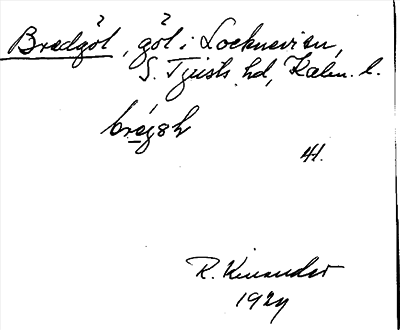 Bredgöl, göl i Locknevisn,
S. Tjusts hd, Kalm. l.
41.
R. Kinander
1927